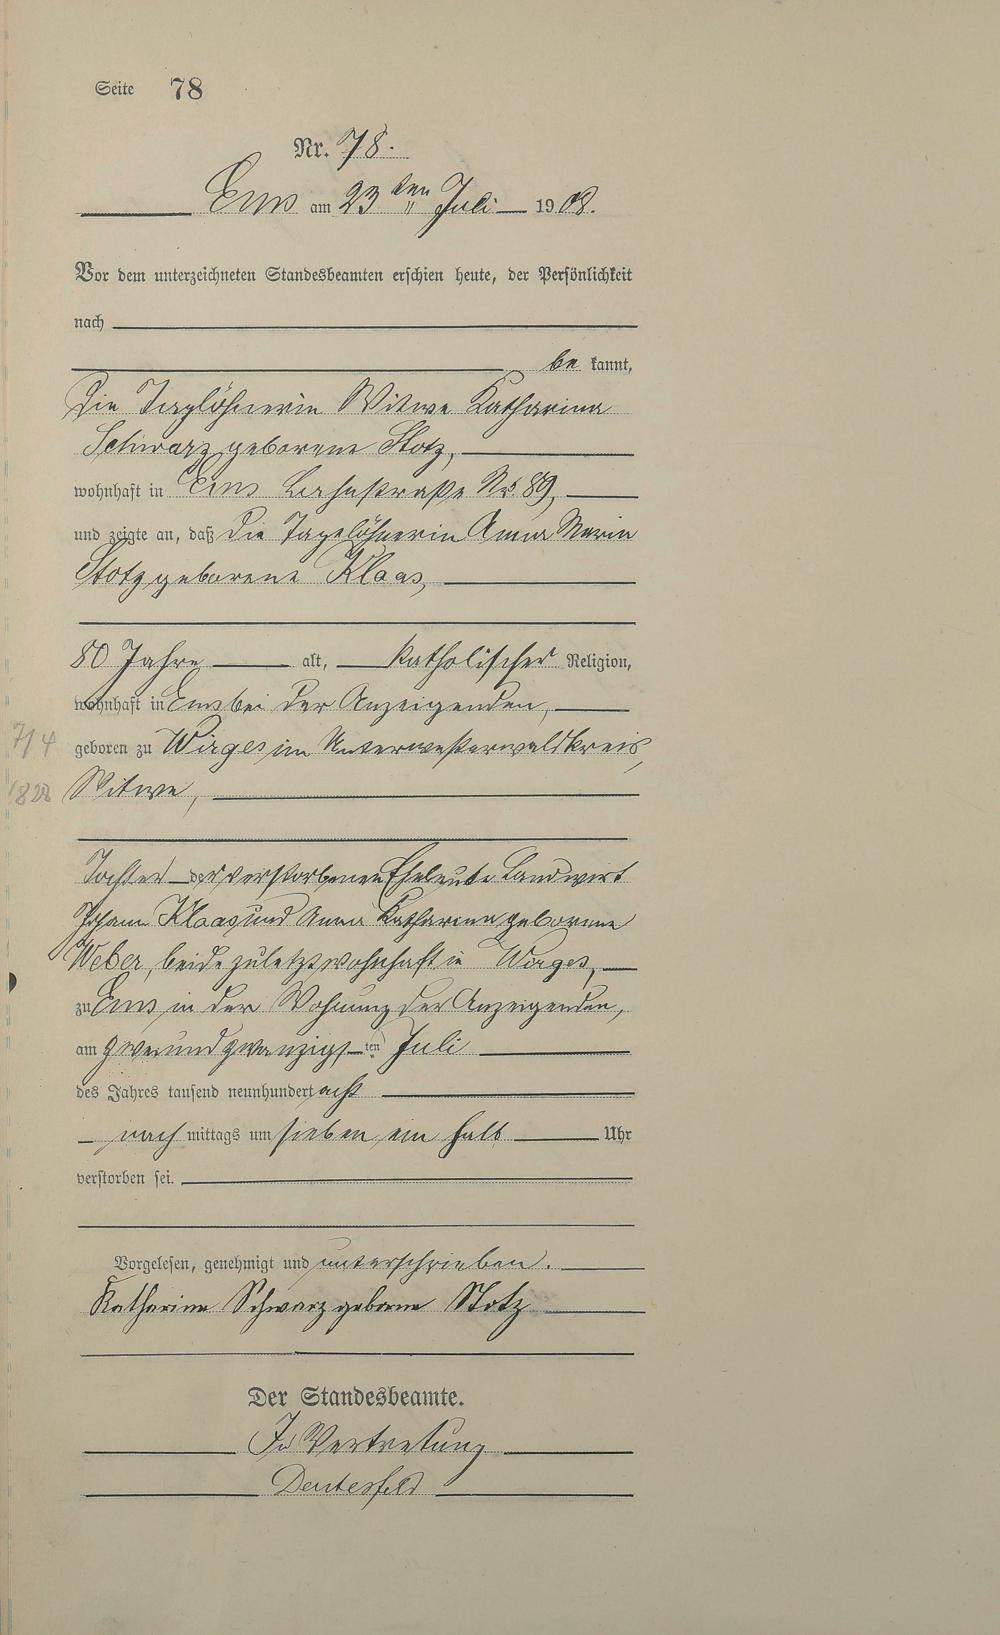 Seite 78
Nr. 78.
Ems am 23ten Juli 1908.
Vor dem unterzeichneten Standesbeamten erschien heute, der Persönlichkeit
nach
be kannt,
die Taglöhnerin Witwe Katharina
Schwarz geborene Stotz,
wohnhaft in Ems Bahnstraße No. 89,
und zeigte an, daß die Tagelöhnerin Anna Maria
Stotz geborene Klaas,
80 Jahre alt, katholischer Religion,
wohnhaft in Ems bei der Anzeigenden,
7/4 geboren zu Wirges im Unterwesterwaldkreis,
1828 Witwe,
Tochter der verstorbenen Eheleute Landwirt
Johann Klaas und Anna Katharina geborene
Weber, beide zuletzt wohnhaft in Wirges,
zu Ems in der Wohnung der Anzeigenden,
am zweiundzwanzigsten Juli
des Jahres tausend neunhundert acht
nach mittags um sieben ein halb Uhr
verstorben sei.
Vorgelesen, genehmigt und unterschrieben.
Katharina Schwarz geborne Stotz
Der Standesbeamte.
In Vertretung